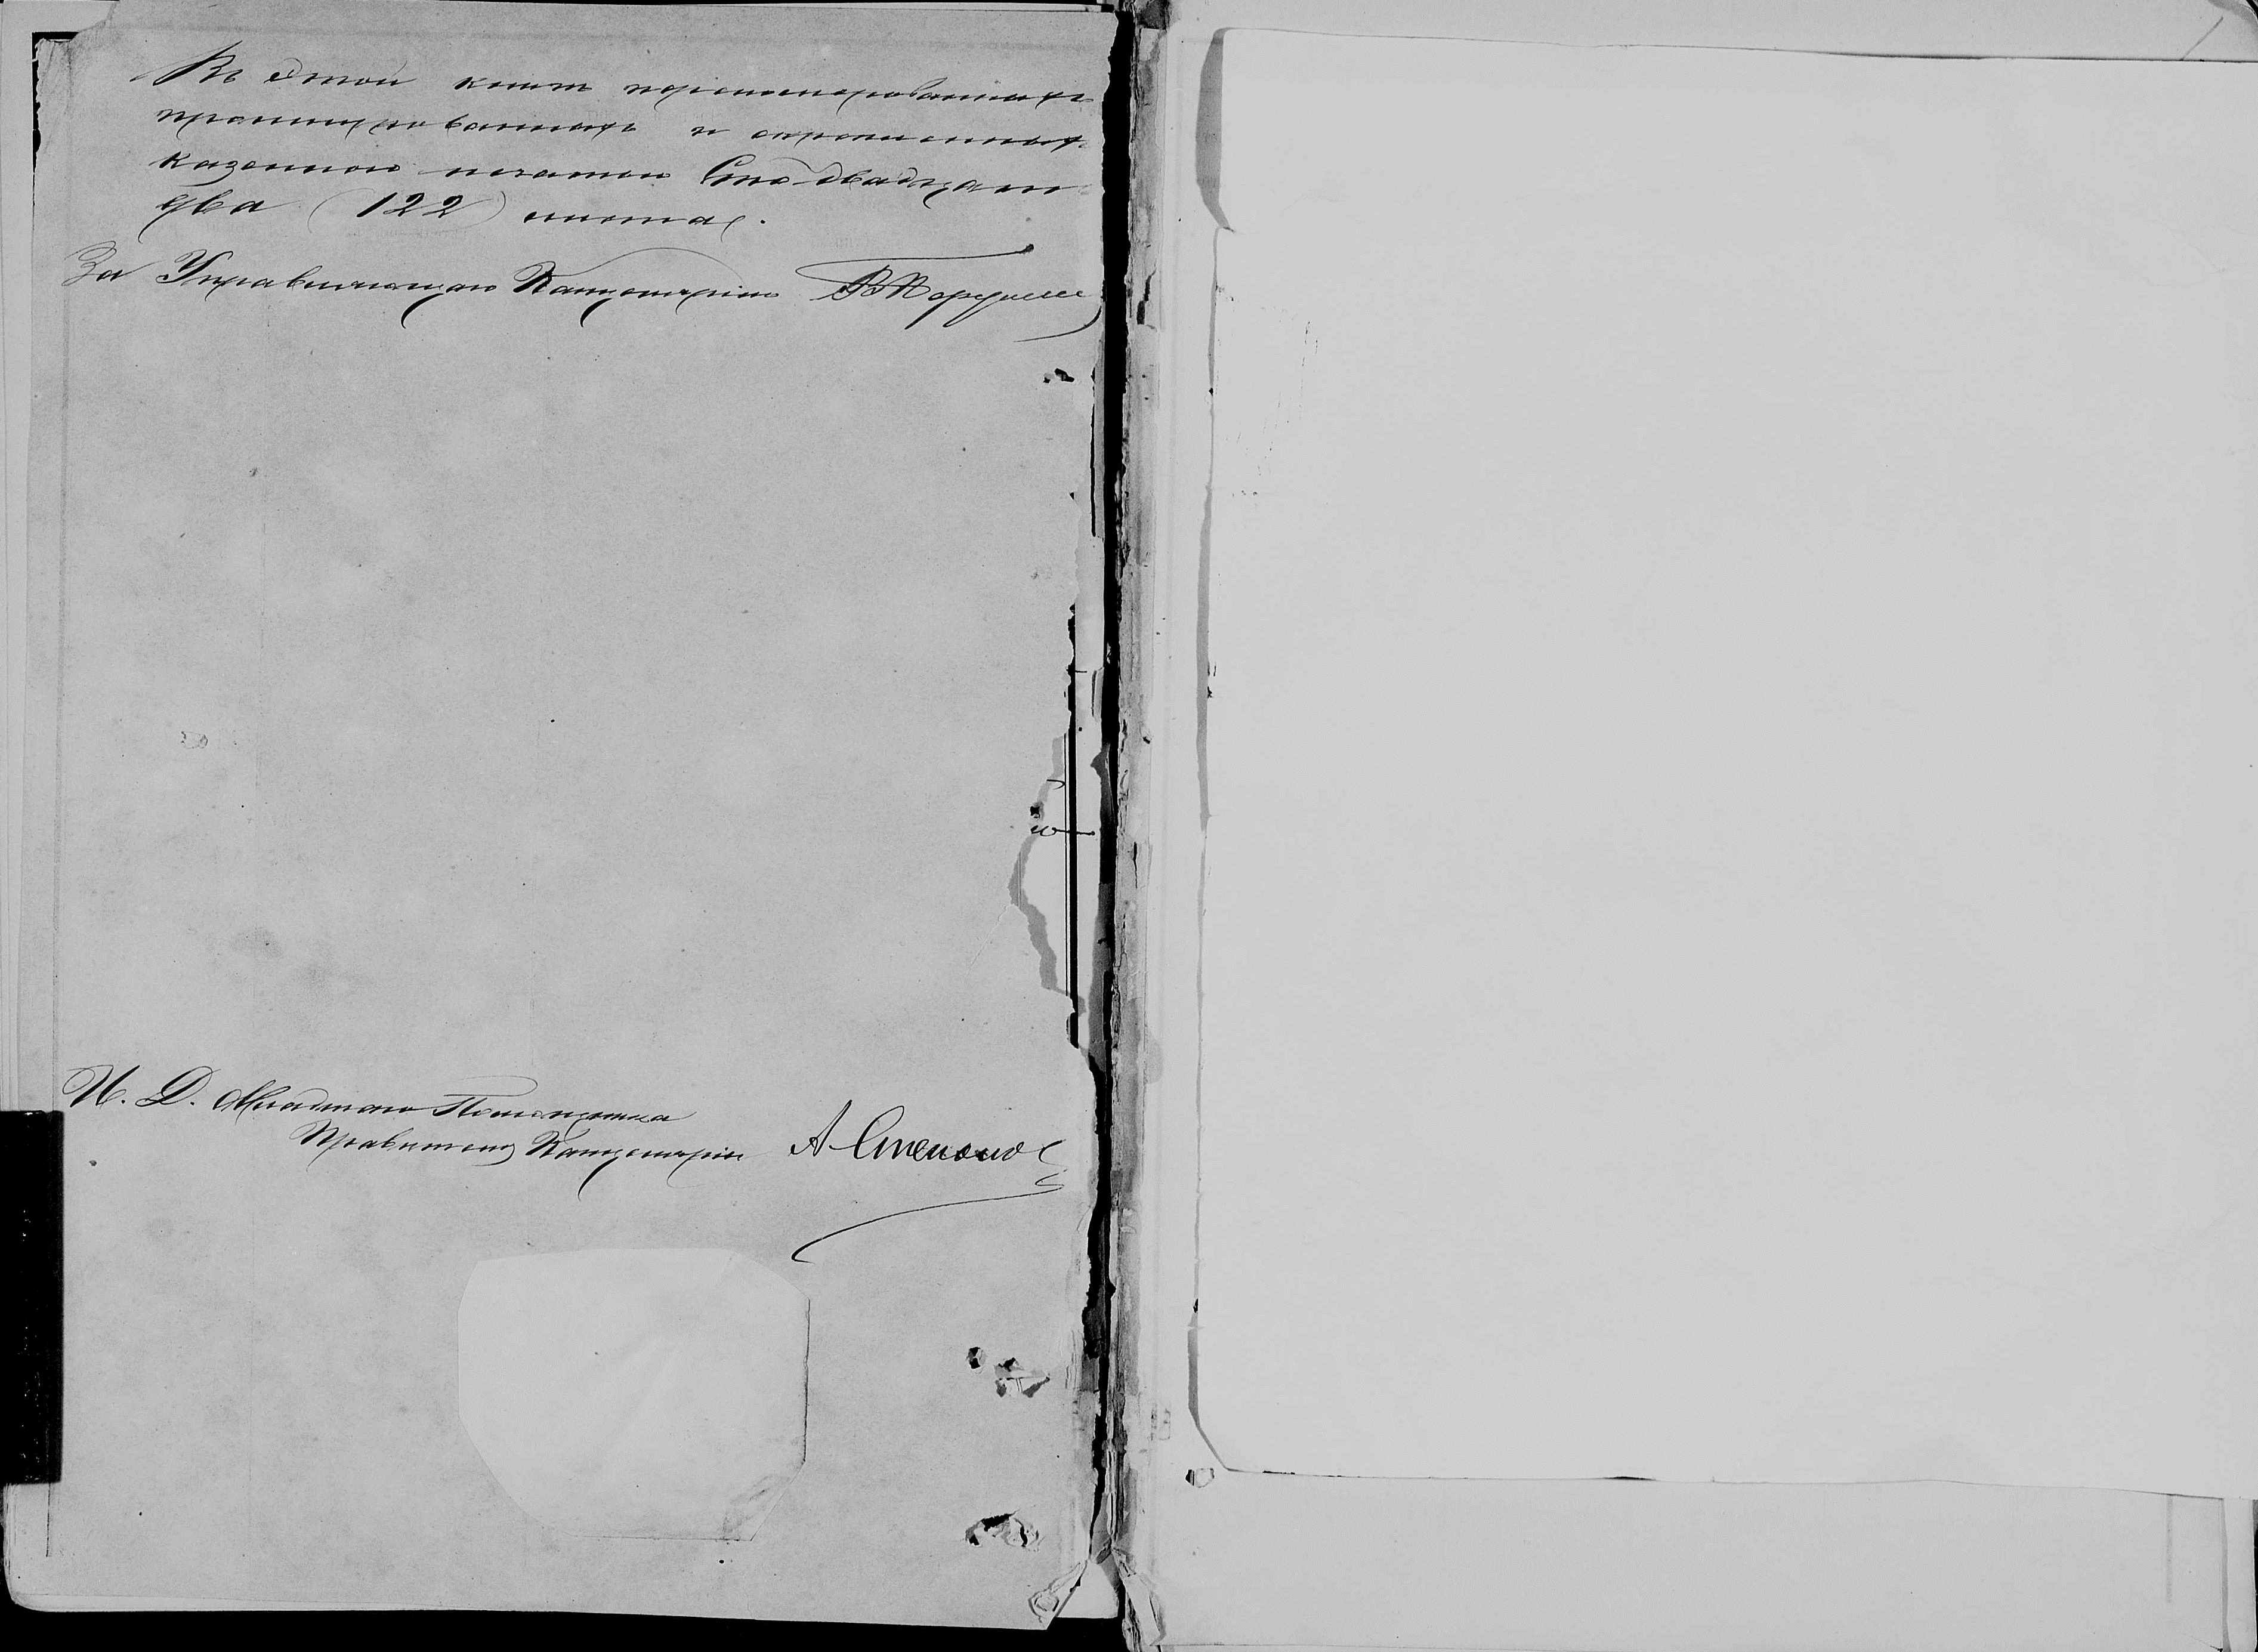 Въ этой книгѣ перенумерованныхъ
прошнурованныхъ и скрепленныхъ
казенною печатью Сто двадцать
два (122) листа.
За Управляющаго Канцеляріею
И. Д. Младшаго Помощника
Правителя Канцеляріи А Степанов